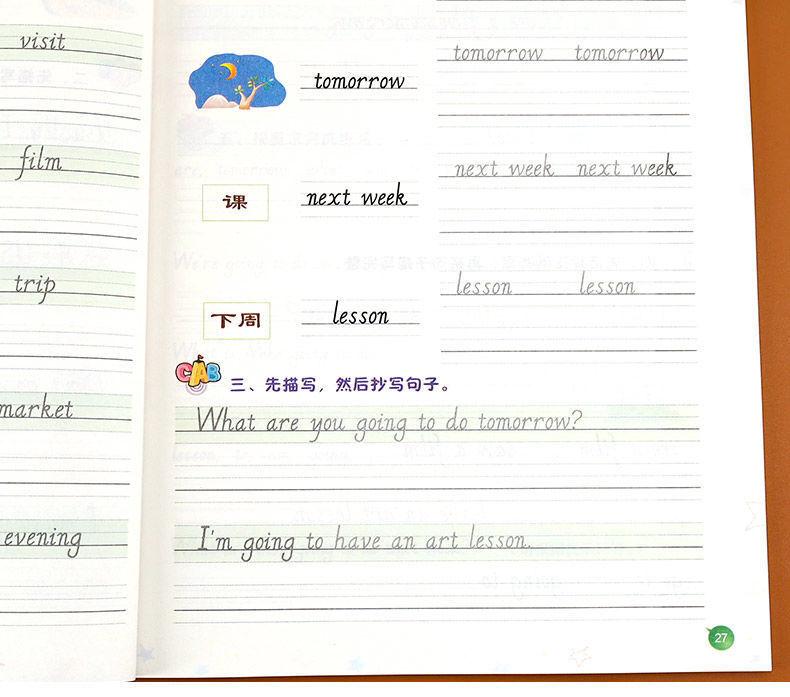 visit
film
trip
market
evening
tomorrow
tomorrow tomorrow
课
next week
next week next week
下周
lesson
lesson lesson
CAB
三、先描写，然后抄写句子。
What are you going to do tomorrow?
I'm going to have an art lesson.
27